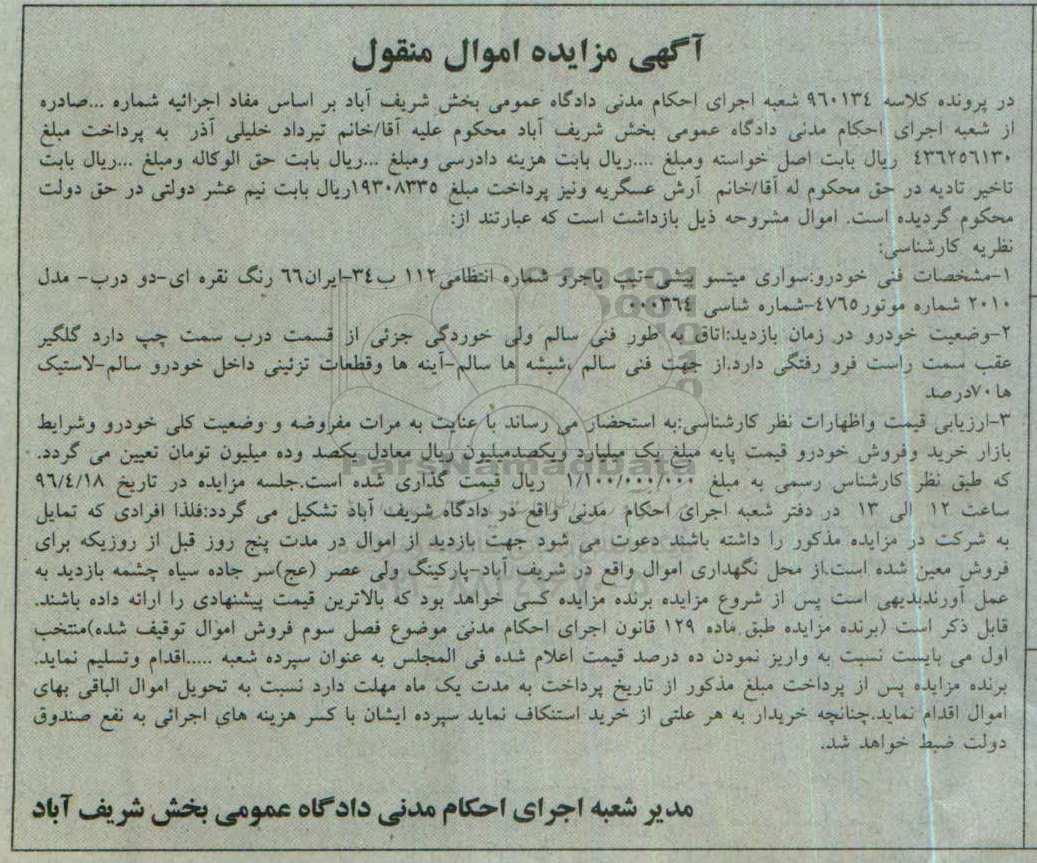 آگهی مزایده اموال منقول
در پرونده کلاسه ۹۶۰۱۳۴ شعبه اجرای احکام مدنی دادگاه عمومی بخش شریف آباد بر اساس مفاد اجرائیه شماره ...صادره
از شعبه اجرای احکام مدنی دادگاه عمومی بخش شریف آباد محکوم علیه آقا/خانم تیرداد خلیلی آذر به پرداخت مبلغ
۴۳۶۲۵۶۱۳۰ ریال بابت اصل خواسته ومبلغ ....ریال بابت هزینه دادرسی ومبلغ ...ریال بابت حق الوکاله ومبلغ ...ریال بابت
تاخیر تادیه در حق محکوم له آقا/خانم آرش عسگریه ونیز پرداخت مبلغ ۱۹۳۰۸۳۳۵ریال بابت نیم عشر دولتی در حق دولت
محکوم گردیده است. اموال مشروحه ذیل بازداشت است که عبارتند از:
نظریه کارشناسی:
۱-مشخصات فنی خودرو:سواری میتسو بیشی-تیپ پاجرو شماره انتظامی۱۱۲ ب۳۴-ایران۶۶ رنگ نقره ای-دو درب- مدل
۲۰۱۰ شماره موتور۴۷۶۵-شماره شاسی ۰۰۰۳۶۴
۲-وضعیت خودرو در زمان بازدید:اتاق به طور فنی سالم ولی خوردگی جزئی از قسمت درب سمت چپ دارد گلگیر
عقب سمت راست فرو رفتگی دارد.از جهت فنی سالم ،شیشه ها سالم-آینه ها وقطعات تزئینی داخل خودرو سالم-لاستیک
ها۷۰درصد
۳-ارزیابی قیمت واظهارات نظر کارشناسی:به استحضار می رساند با عنایت به مرات مفروضه و وضعیت کلی خودرو وشرایط
بازار خرید وفروش خودرو قیمت پایه مبلغ یک میلیارد ویکصدمیلیون ریال معادل یکصد وده میلیون تومان تعیین می گردد.
که طبق نظر کارشناس رسمی به مبلغ ۱/۱۰۰/۰۰۰/۰۰۰ ریال قیمت گذاری شده است.جلسه مزایده در تاریخ ۹۶/۴/۱۸
ساعت ۱۲ الی ۱۳ در دفتر شعبه اجرای احکام مدنی واقع در دادگاه شریف آباد تشکیل می گردد:فلذا افرادی که تمایل
به شرکت در مزایده مذکور را داشته باشند دعوت می شود جهت بازدید از اموال در مدت پنج روز قبل از روزیکه برای
فروش معین شده است.از محل نگهداری اموال واقع در شریف آباد-پارکینگ ولی عصر (عج)سر جاده سیاه چشمه بازدید به
عمل آورندبدیهی است پس از شروع مزایده برنده مزایده کسی خواهد بود که بالاترین قیمت پیشنهادی را ارائه داده باشند.
قابل ذکر است (برنده مزایده طبق ماده ۱۲۹ قانون اجرای احکام مدنی موضوع فصل سوم فروش اموال توقیف شده)منتخب
اول می بایست نسبت به واریز نمودن ده درصد قیمت اعلام شده فی المجلس به عنوان سپرده شعبه .....اقدام وتسلیم نماید.
برنده مزایده پس از پرداخت مبلغ مذکور از تاریخ پرداخت به مدت یک ماه مهلت دارد نسبت به تحویل اموال الباقی بهای
اموال اقدام نماید.چنانچه خریدار به هر علتی از خرید استنکاف نماید سپرده ایشان با کسر هزینه های اجرائی به نفع صندوق
دولت ضبط خواهد شد.
مدیر شعبه اجرای احکام مدنی دادگاه عمومی بخش شریف آباد
ParsNamadData